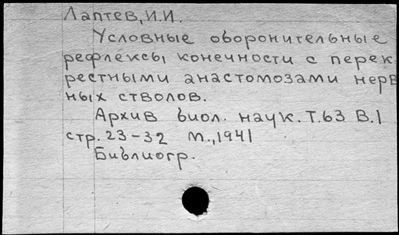 Лаптев, И.И.
Условные оборонительные
рефлексы конечности с перек
рестными анастомозами нерв
ных стволов.
Архив биол. наук. Т.63 В.1
стр. 23-32 М., 1941
Библиогр.